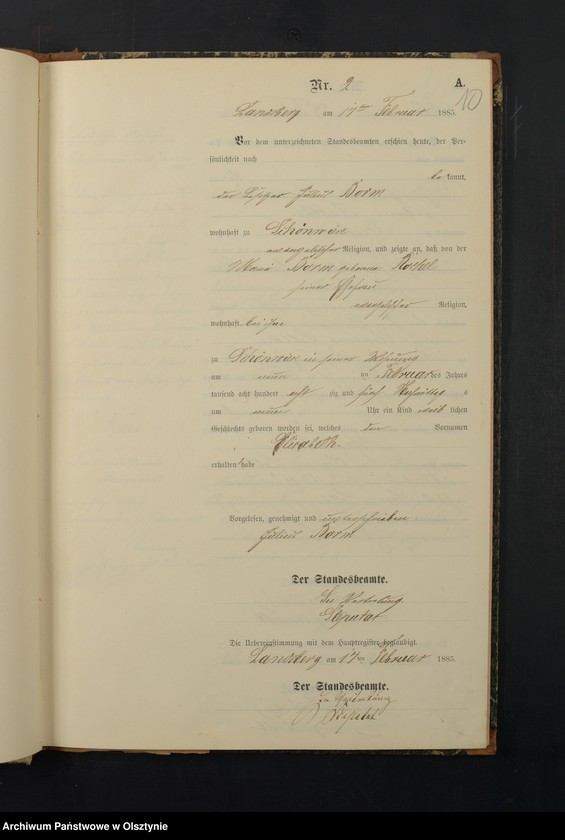 Nr. 2
A.
10
Landsberg am 17ten Februar 1885.
Vor dem unterzeichneten Standesbeamten erschien heute, der Per-
sönlichkeit nach
be kannt,
der Besitzer Julius Borm
wohnhaft zu Schönwiese
evangelischer Religion, und zeigte an, daß von der
Borm geborene
seiner Ehefrau
evangelischer Religion,
wohnhaft bei ihm
zu Schönwiese in seiner Wohnung
am neun ten Februar des Jahres
tausend acht hundert acht zig und fünf Vormittags
um neun Uhr ein Kind weib lichen
Geschlechts geboren worden sei, welches den Vornamen
Elisabeth.
erhalten habe
Vorgelesen, genehmigt und unterschrieben
Julius Borm
Der Standesbeamte.
In Vertretung
Die Uebereinstimmung mit dem Hauptregister beglaubigt.
Landsberg am 17ten Februar 1885.
Der Standesbeamte.
In Vertretung
Archiwum Państwowe w Olsztynie